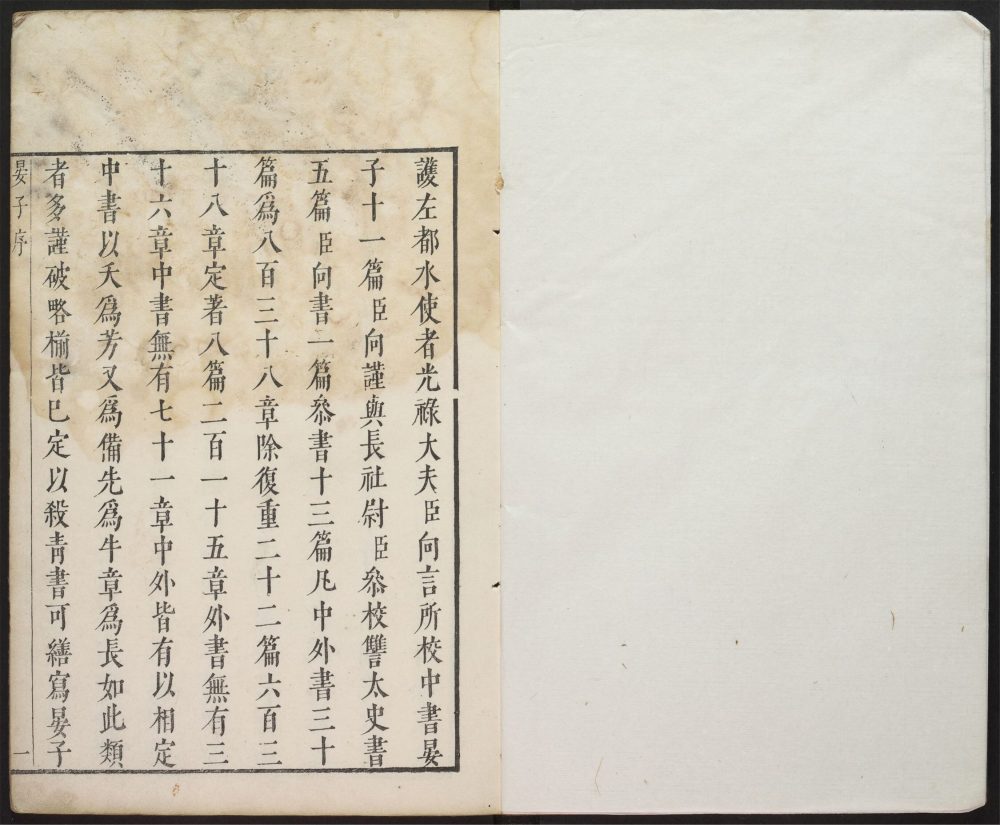 護左都水使者光祿大夫臣向言所校中書晏
子十一篇臣向謹與長社尉臣叅校讐太史書
五篇臣向書一篇叅書十三篇凡中外書三十
篇爲八百三十八章除復重二十二篇六百三
十八章定著八篇二百一十五章外書無有三
十六章中書無有七十一章中外皆有以相定
中書以夭爲芳又爲備先爲牛章爲長如此類
者多謹破略椾皆已定以殺靑書可繕寫晏子
晏子序
一